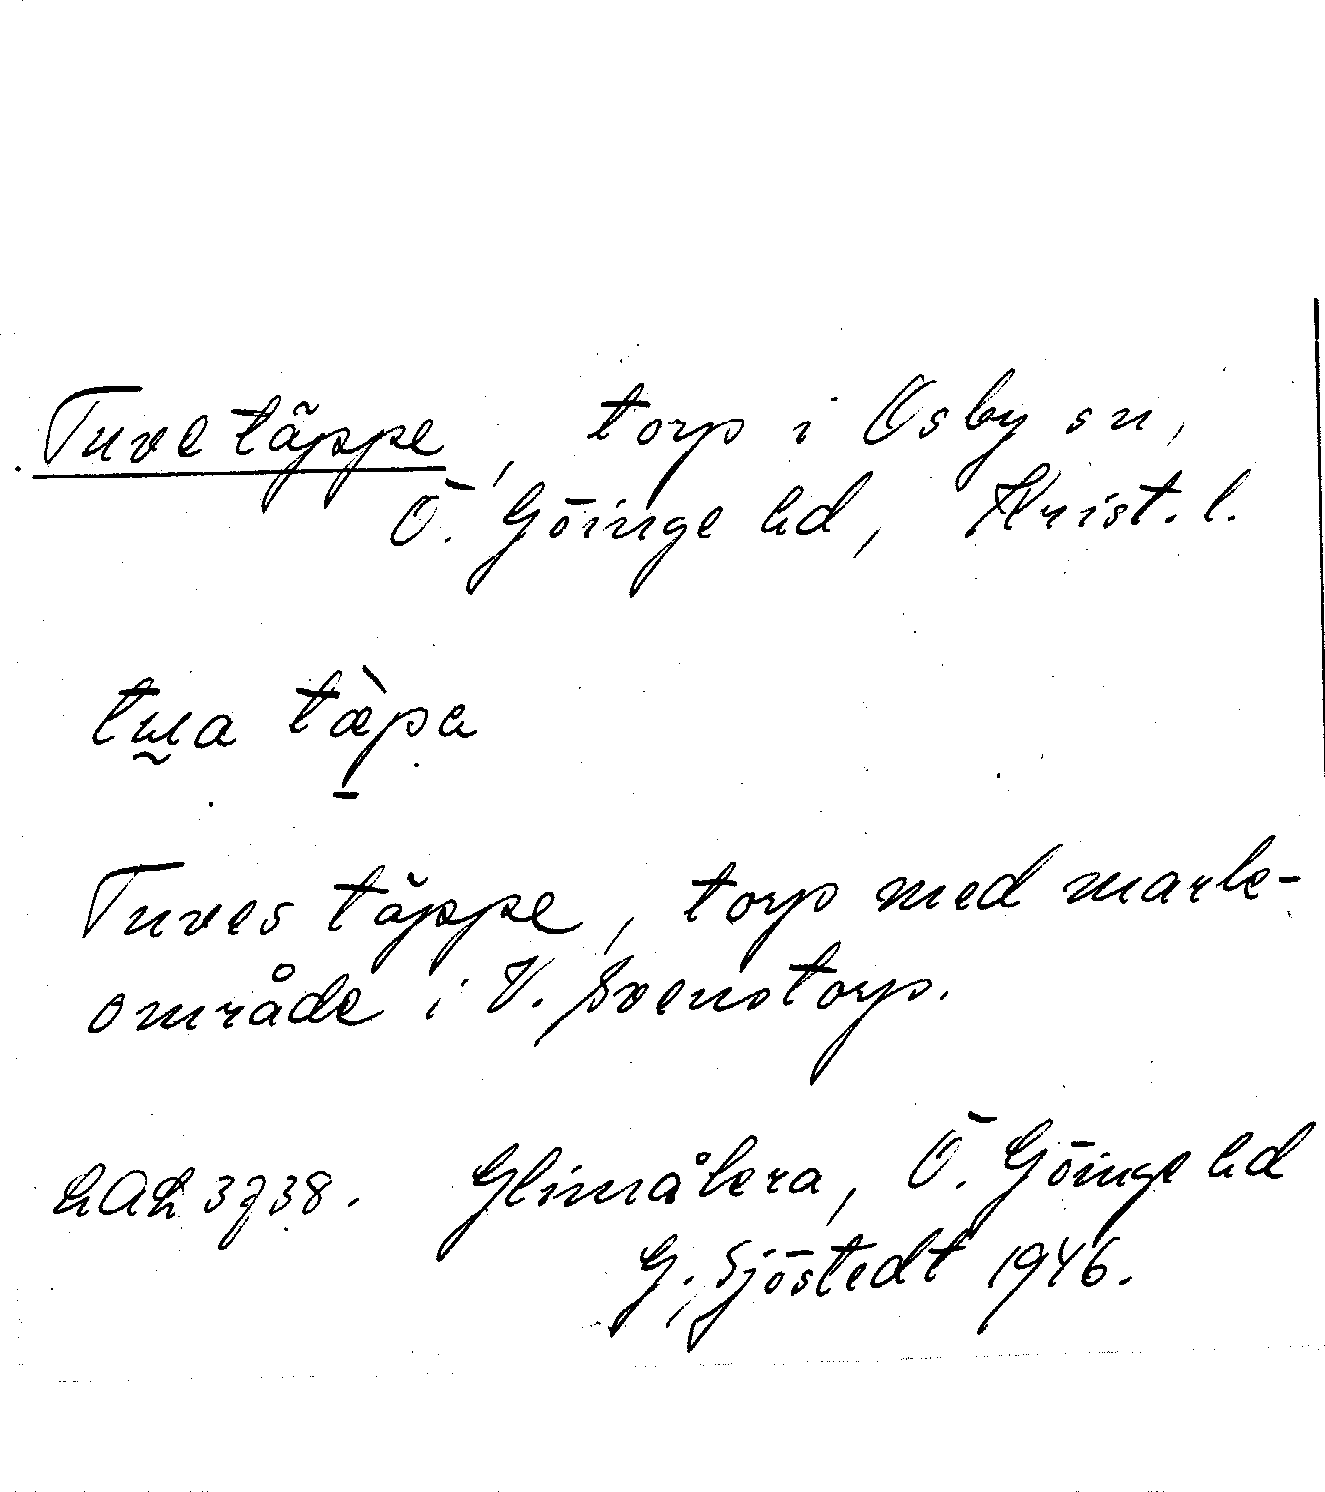 Tuvetäppe, torp i Osby sn,
Ö. Göinge hd, Krist. l.
tua tæ̀pa
Tuves täppe, torp med mark-
område i V. Svenstorp.
LAL 3738. Glimåkra, Ö. Göinge hd
G. Sjöstedt 1946.